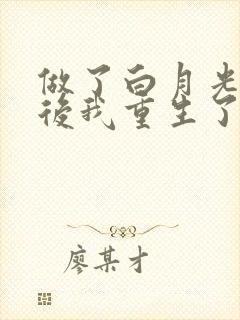 做了白月光
後我重生了
廖某才